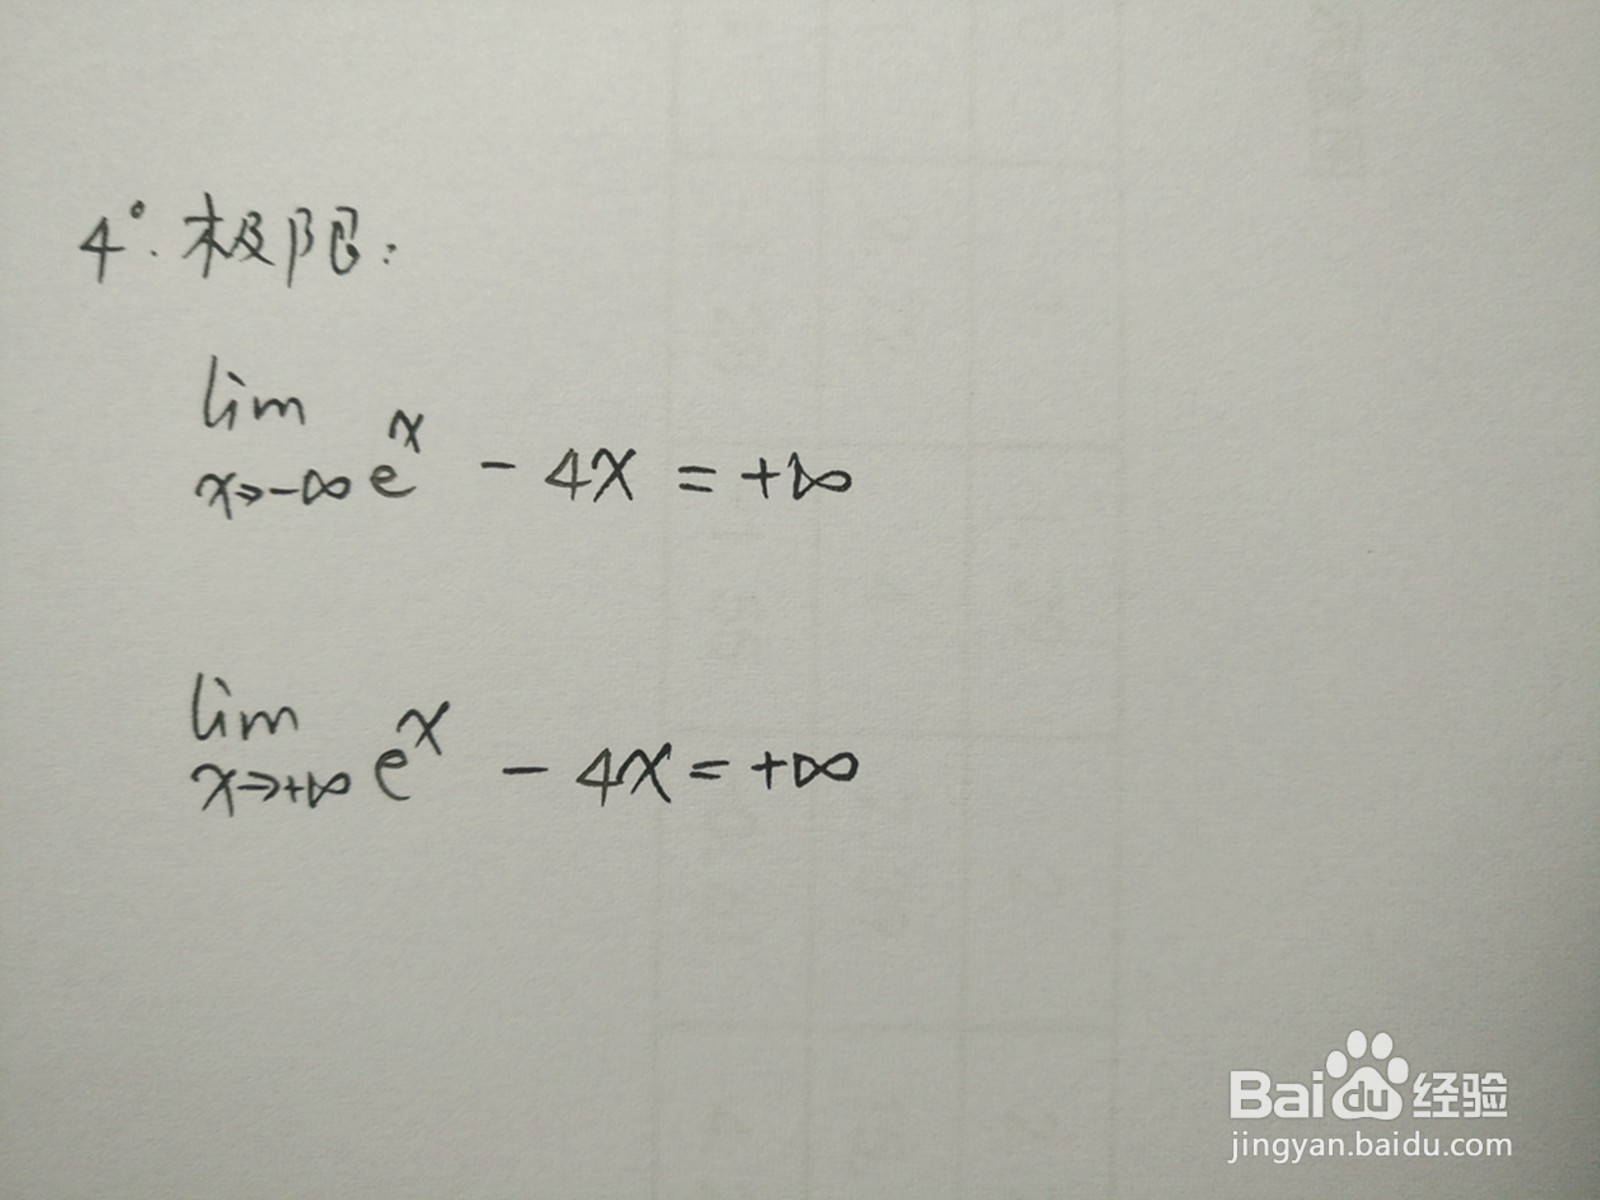 4°. 极限:
lim
x→-∞ eˣ - 4x = +∞
lim
x→+∞ eˣ - 4x = +∞
Baidu 经验
jingyan.baidu.com